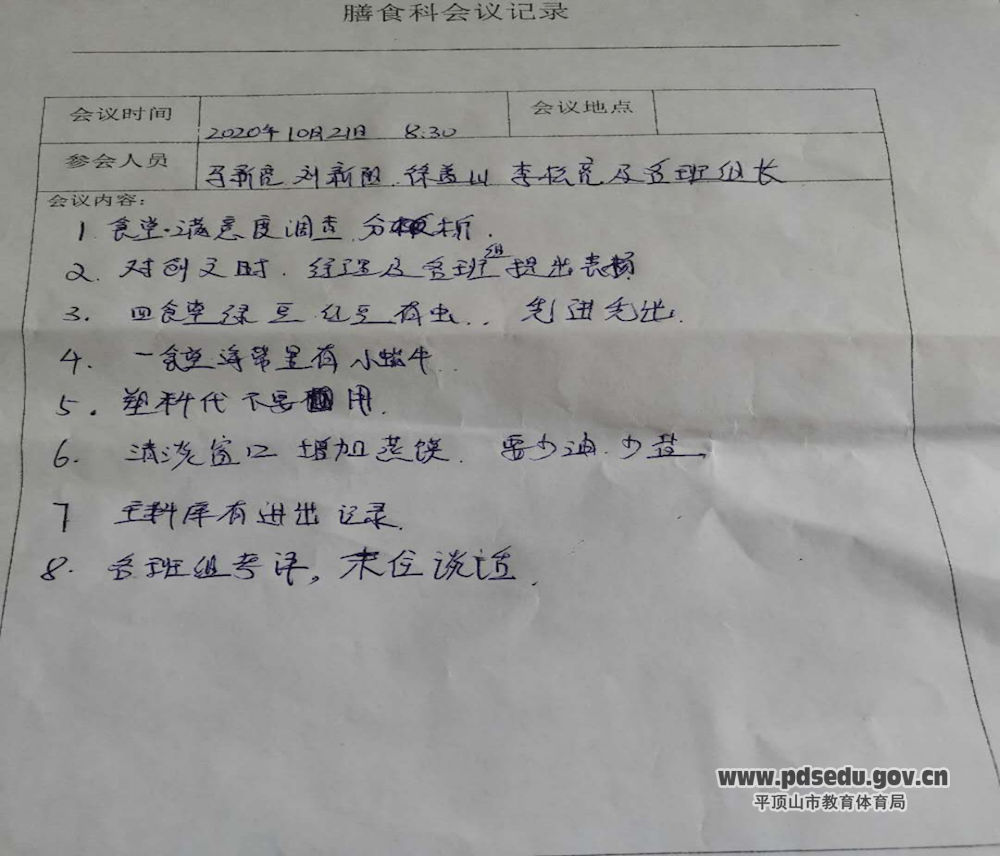 膳食科会议记录
会议时间 2020年10月21日 8:30 会议地点
参会人员 马新亮 刘新阳 徐孟山 李松亮及各班组长
会议内容：
1 食堂满意度调查分析.
2. 对创文时. 经理及各班组提出表扬
3. 四食堂绿豆红豆有虫.. 先进先出.
4. 一食堂海带里有小蜗牛..
5. 塑料代不要用.
6. 清洗窗口增加蒸馍. 要少油.少盐.
7 主料库有进出记录.
8. 各班组考评, 末位谈话.
www.pdsedu.gov.cn
平顶山市教育体育局